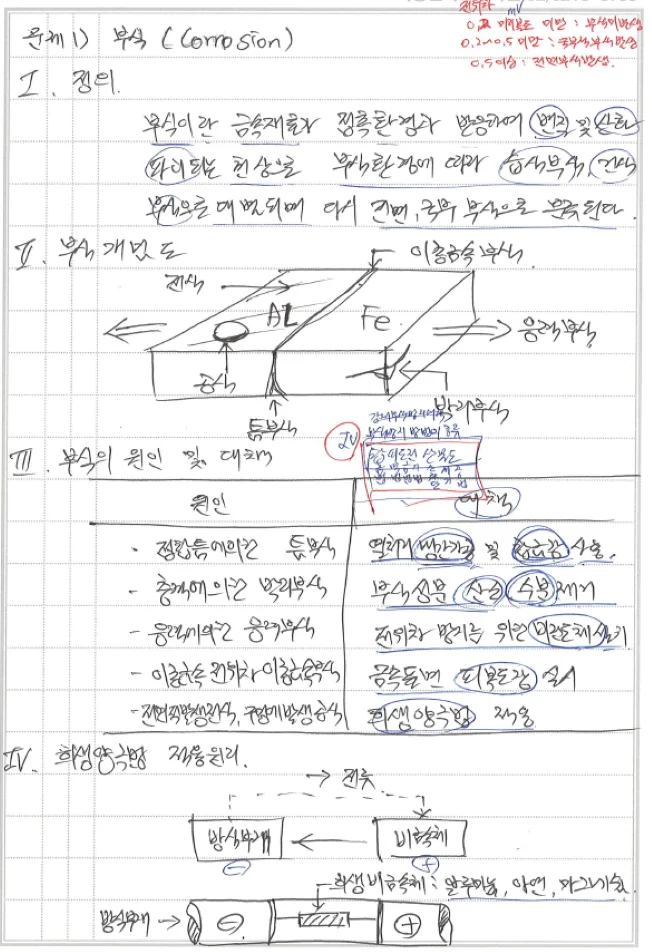 전위차 mV
0.2 미만 : 부식미발생
0.2~0.5 미만 : 국부부식발생
0.5 이상 : 전면부식발생.
문제 1) 부식 (Corrosion)
I. 정의.
부식이란 금속재료가 접촉환경과 반응하여 변질 및 산화
파괴되는 현상으로 부식환경에 따라 습식부식, 건식
부식으로 대별되며 다시 전면, 국부 부식으로 분류된다.
II. 부식 개념도
이종금속부식.
전식
Al
Fe.
응력부식
공식
틈부식
박리부식
IV
III. 부식의 원인 및 대책
원인
대책
· 접합틈에의한 틈부식
열처리 냉간가공 및 합금강 사용.
- 충격에의한 박리부식
부식성분 산소 수분 제거
- 응력에의한 응력부식
전위차 방지를 위한 비전도체 설치
- 이종금속 전위차 이종금속부식
금속표면 피복도장 실시
희생양극법 적용
IV. 희생양극법 적용원리.
→ 전류
방식부재
비금속체
⊖
⊕
희생비금속체 : 알루미늄, 아연, 마그네슘.
방식부재 →
⊖
⊕